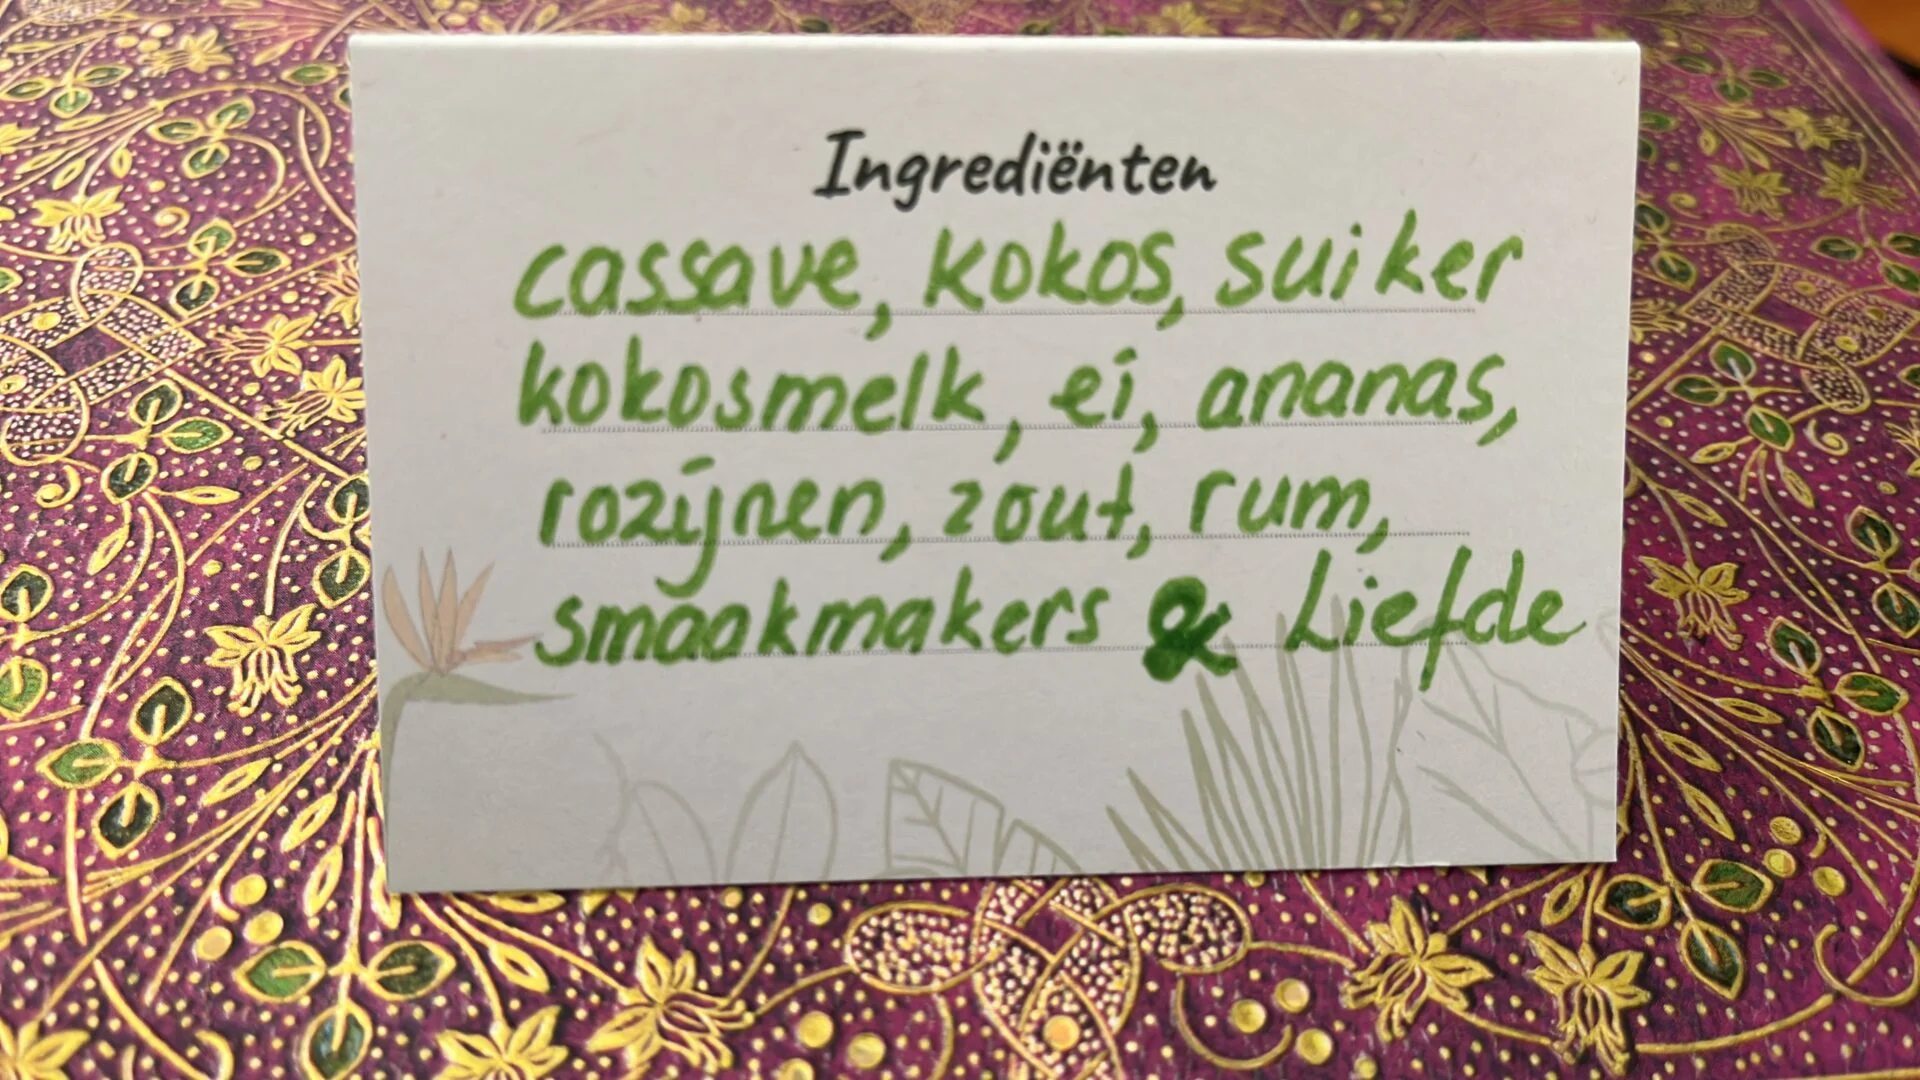 Ingrediënten
cassave, kokos, suiker
kokosmelk, ei, ananas,
rozijnen, zout, rum,
smaakmakers & Liefde